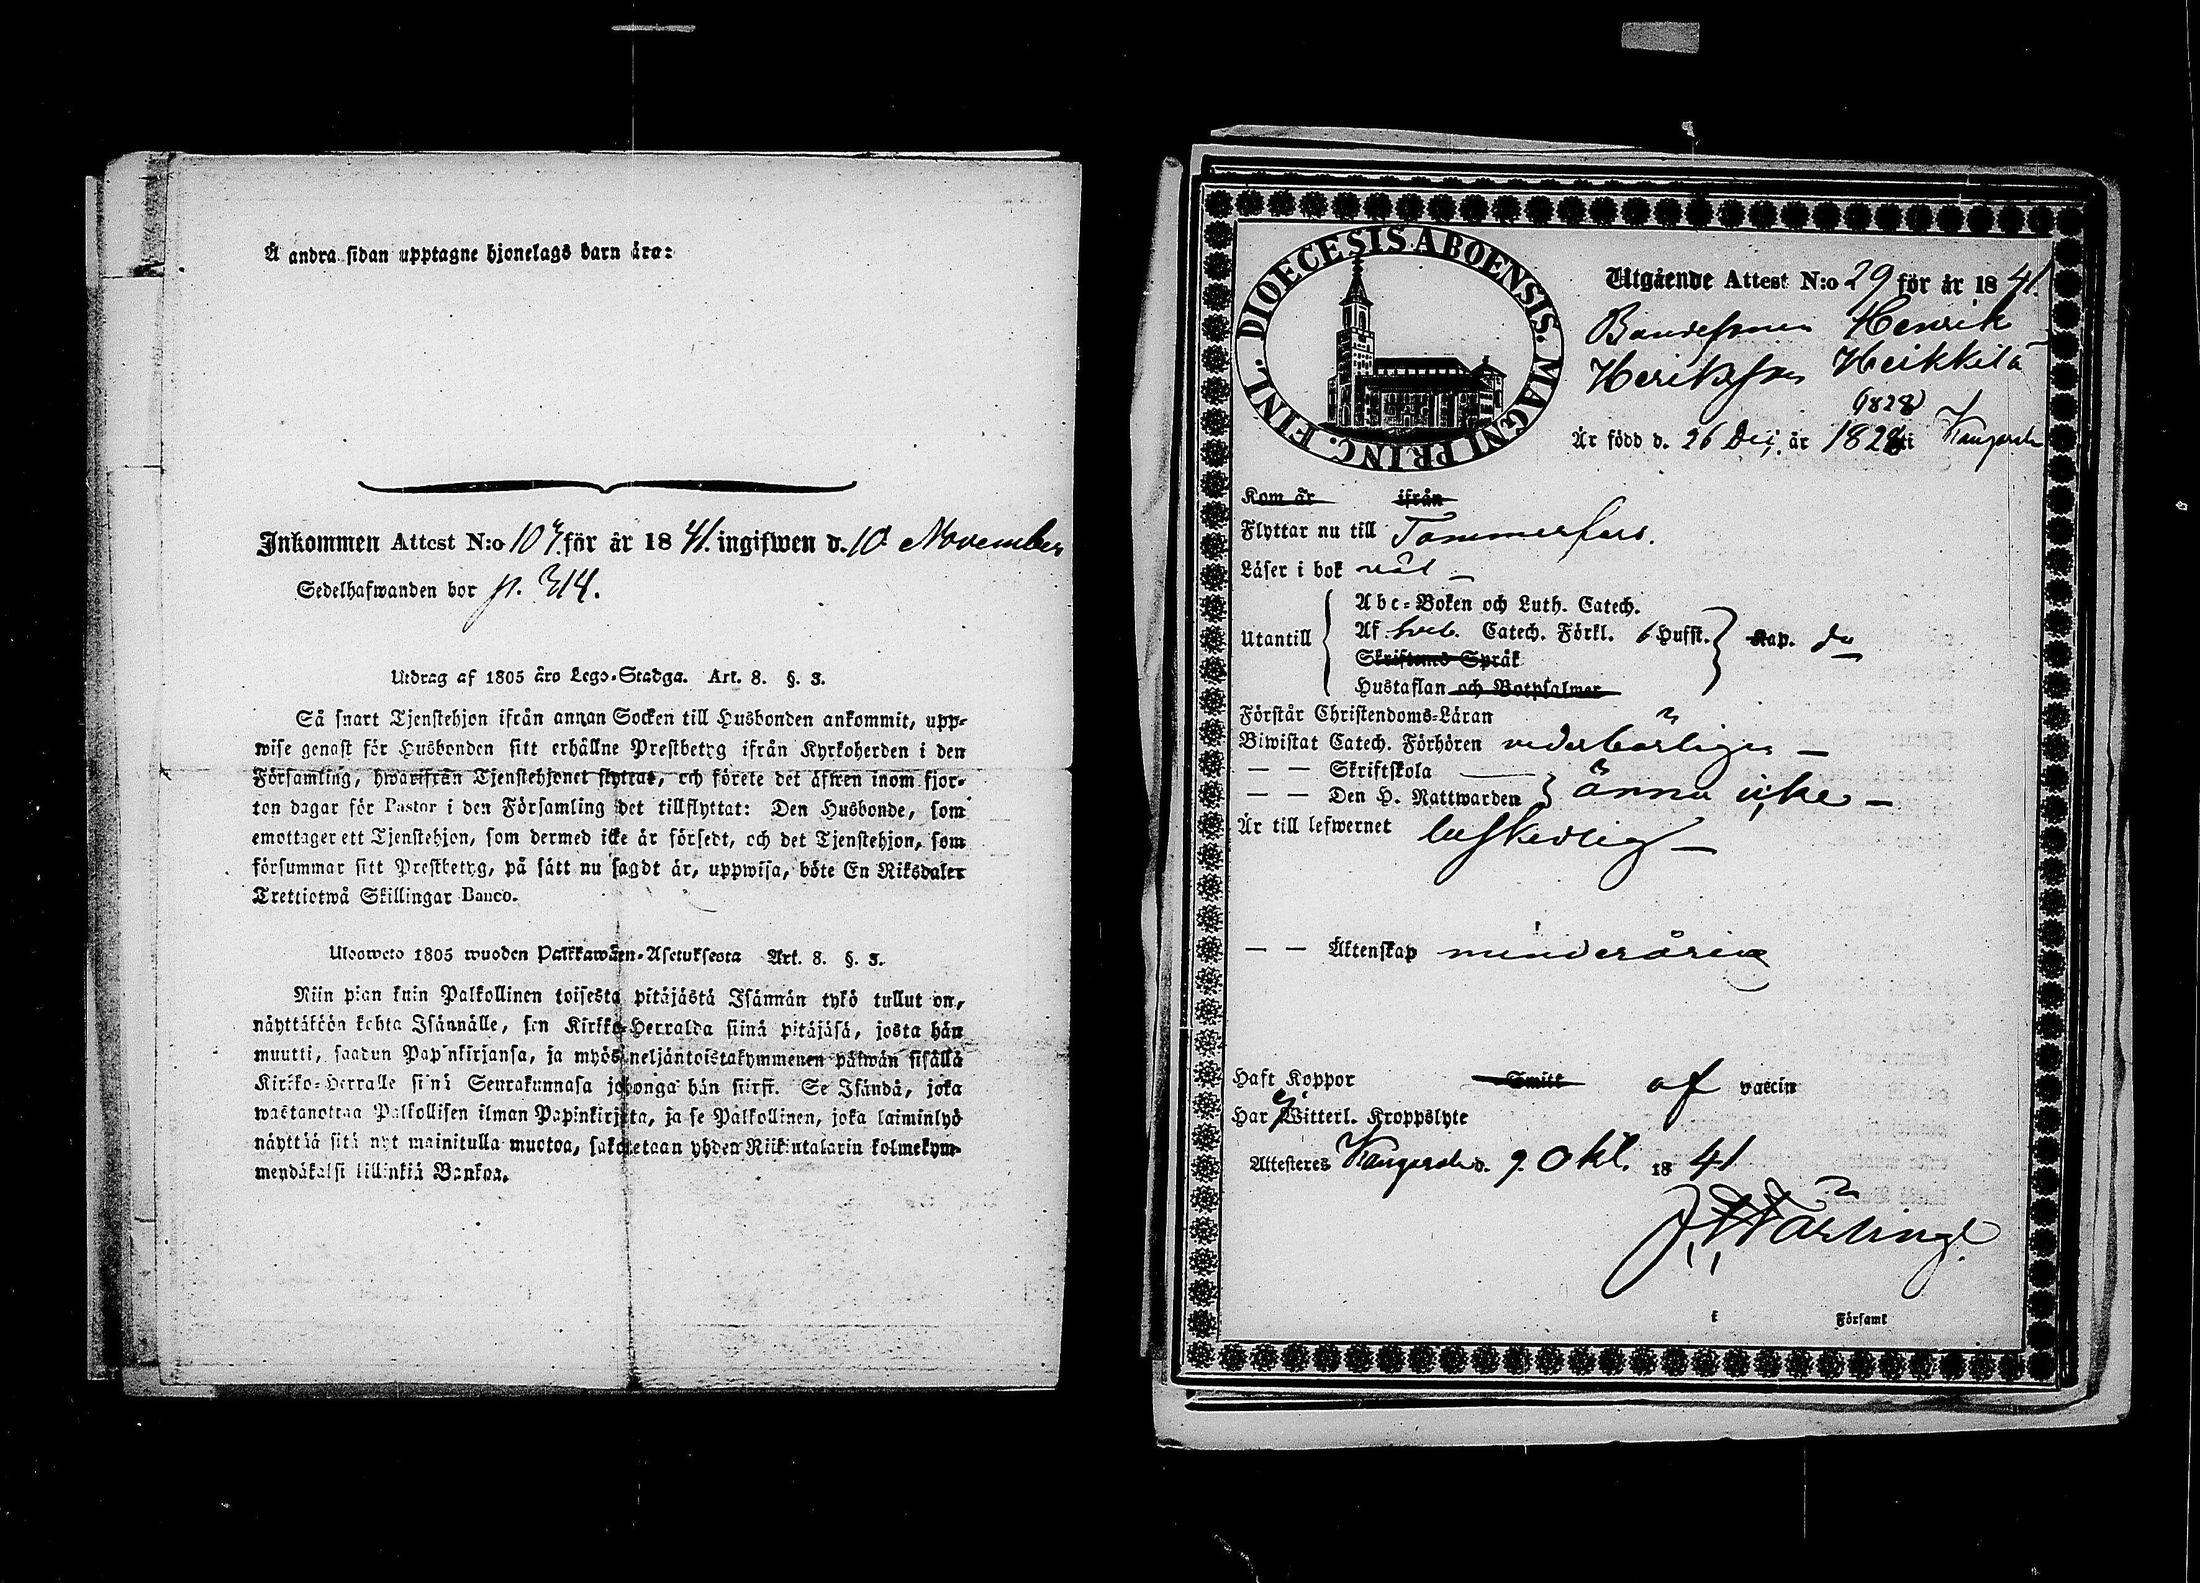 Å andra sidan upptagne hjonelags barn äro:
Inkommen Attest N:o 107 för år 1841. ingifwen d. 10 November
Sedelhafwanden bor p. 314.
Utdrag af 1805 års Lego-Stadga. Art. 8. §. 3.
Så snart Tjenstehjon ifrån annan Socken till Husbonden ankommit, upp-
wise genast för Husbonden sitt erhållne Prestbetyg ifrån Kyrkoherden i den
Församling, hwarifrån Tjenstehjonet flyttat, och förete det äfwen inom fjor-
ton dagar för Pastor i den Församling det tillflyttat: Den Husbonde, som
emottager ett Tjenstehjon, som dermed icke är försedt, och det Tjenstehjon, som
försummar sitt Prestbetyg, på sätt nu sagdt är, uppwisa, böte En Riksdaler
Trettiotwå Skillingar Banco.
Ulosweto 1805 wuoden Palkkawäen-Asetuksesta Art. 8. §. 3.
Niin pian kuin Palkollinen toisesta pitäjästä Isännän tykö tullut on,
näyttäköön kohta Isännälle, sen Kirkko-Herralda siinä pitäjäsä, josta hän
muutti, saadun Papinkirjansa, ja myös neljäntoistakymmenen päiwän sisällä
Kirkko-Herralle siinä Seurakunnasa johonga hän siirsi. Se Isändä, joka
wastanottaa Palkollisen ilman Papinkirjata, ja se Palkollinen, joka laiminlyö
näyttää sitä nyt mainitulla muotoa, sakotetaan yhden Riikintalarin kolmekym-
mendäkaksi killinkiä Bankoa.
DIOECESIS ABOENSIS. MAGNI PRINC. FINL.
Utgående Attest N:o 29 för år 1841.
Bondesonen Henrik
Heriksson Heikkilä
(1828)
Är född d. 26 Dec. år 1828 i Kangasala
Kom år ifrån
Flyttar nu till Tammerfors.
Läser i bok väl
Utantill
Abc-Boken och Luth. Catech.
Af Sveb. Catech. Förkl. 6 Hufst. Kap. do
Skriftenes Språk
Hustaflan och Botpsalmer
Förstår Christendoms-Läran
Biwistat Catech. Förhören vederbörligen
— — Skriftskola
— — Den H. Nattwarden ännu icke
Är till lefwernet beskedlig
— — Äktenskap minderårig
Haft Koppor Smitt af vaccin
Har ej Witterl. Kroppslyte
Attesteres Kangasala d. 9. Okt. 1841
i Församl